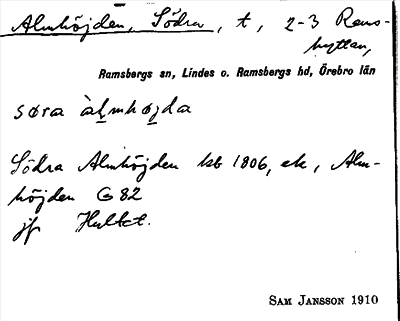 Almhöjden, Södra, t, 2-3 Rams-
hyttan,
Ramsbergs sn, Lindes o. Ramsbergs hd, Örebro län
søra àlmhøjda
Södra Almhöjden kb 1806, ek, Alm-
höjden G 82
jfr Hultet.
SAM JANSSON 1910